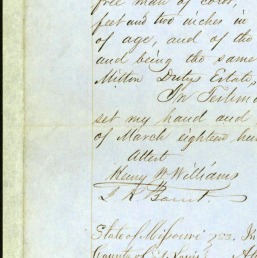 free man of color,
feet and two inches in
of age, and of the
and being the same
Milton Dutys Estate,
In Testimo
set my hand and
of March eighteen hun
Attest
Henry W Williams
State of Missouri
County of St Louis